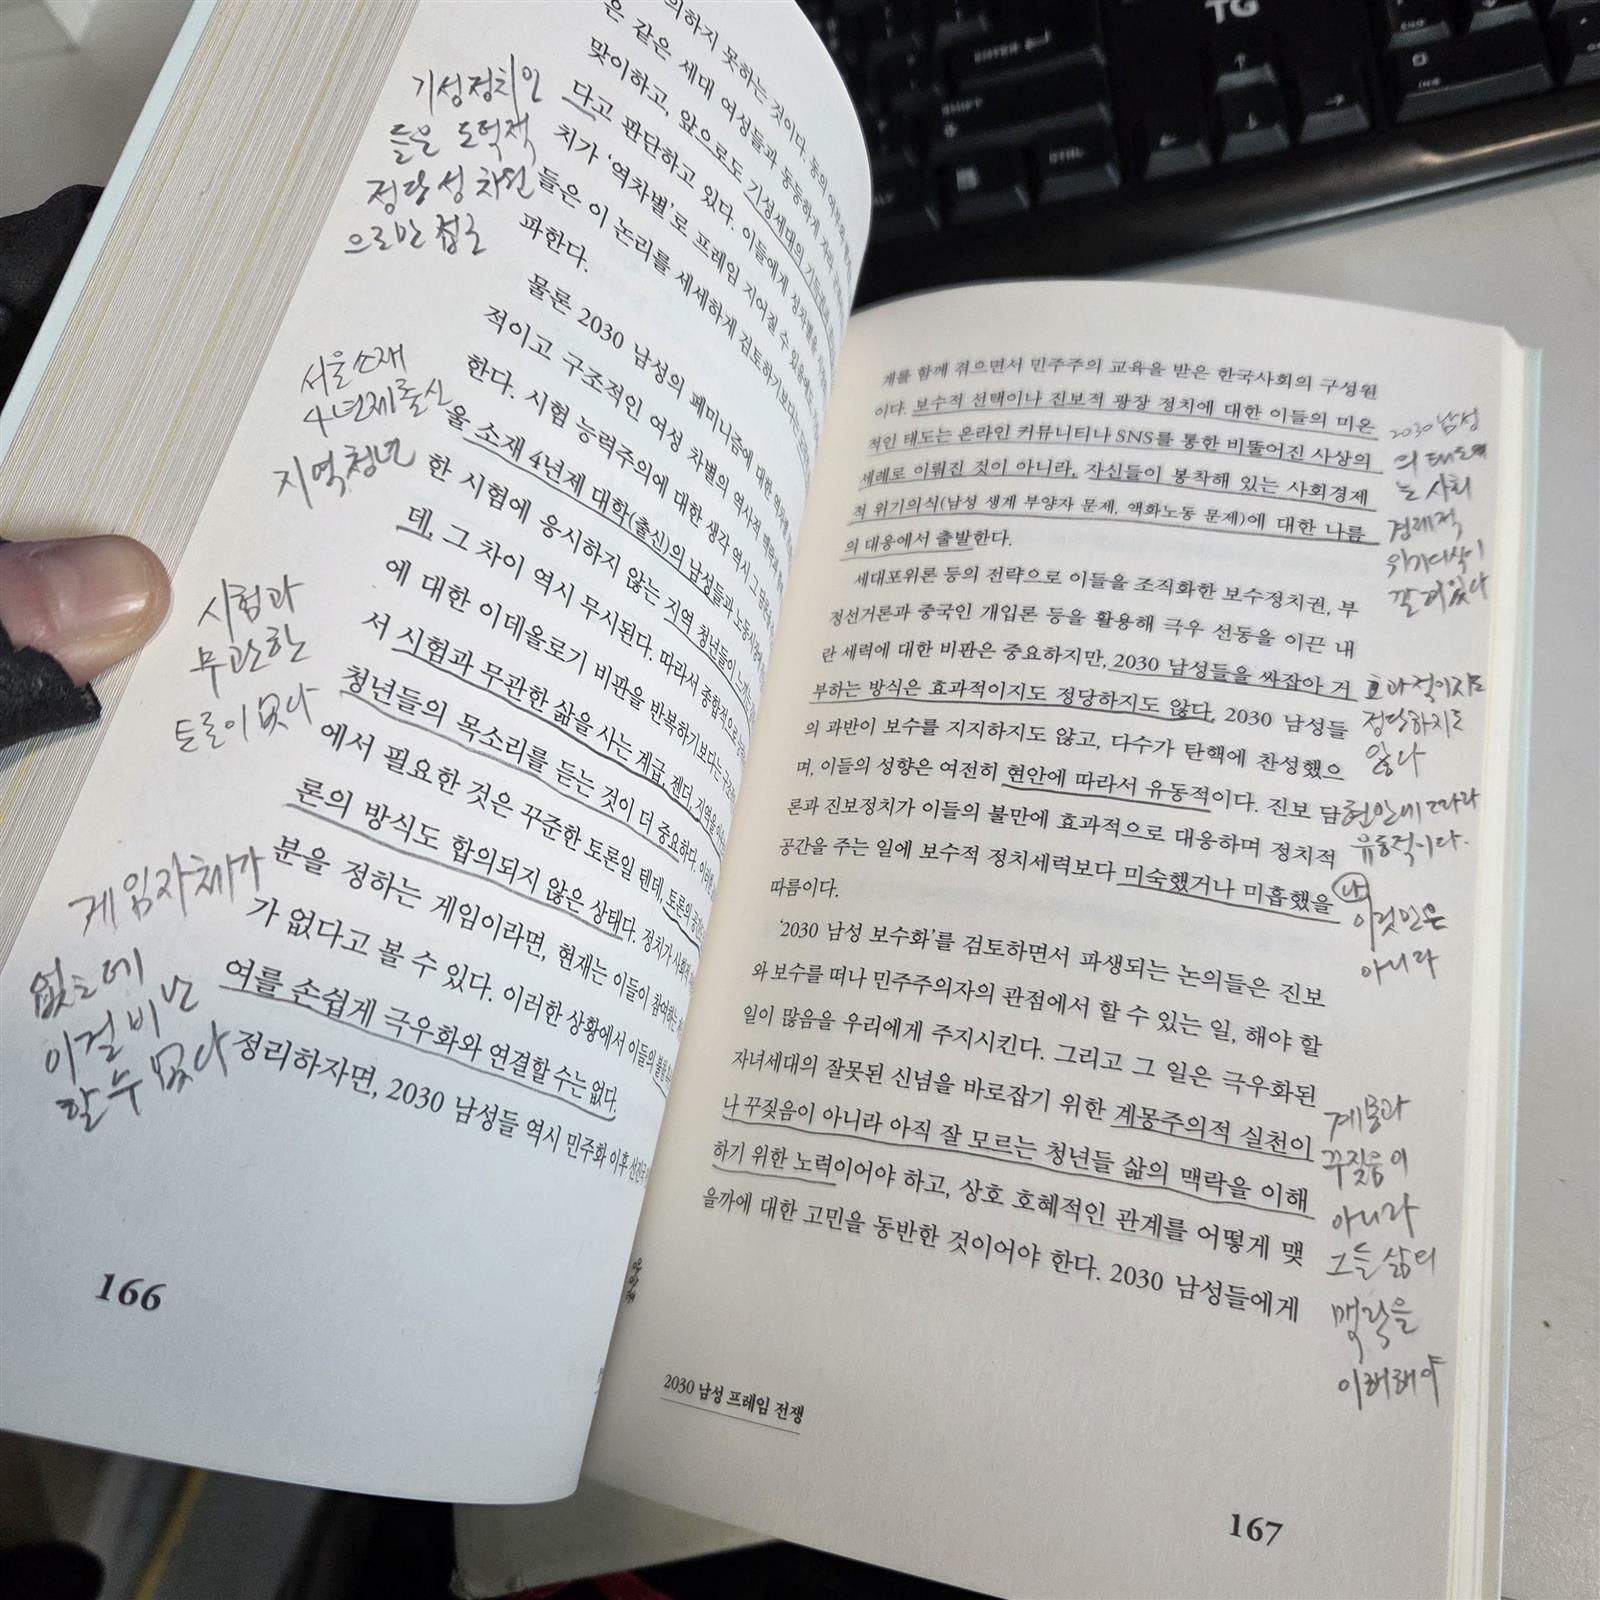 의하지 못하는 것이다. 동의
은 같은 세대 여성들과 동등하게
맞이하고, 앞으로도 기성세대의 기득권
다고 판단하고 있다. 이들에게 성차별을
치가 '역차별'로 프레임 지어질 수 있음에도
들은 이 논리를 세세하게 검토하기보다는
파한다.
물론 2030 남성의 페미니즘에 대한
적이고 구조적인 여성 차별의 역사적 맥락
한다. 시험 능력주의에 대한 생각 역시 그
울 소재 4년제 대학(출신)의 남성들과 노동시장
한 시험에 응시하지 않는 지역 청년들이 느끼는
데, 그 차이 역시 무시된다. 따라서 종합적으로
에 대한 이데올로기 비판을 반복하기보다는
서 시험과 무관한 삶을 사는 계급, 젠더, 지역을
청년들의 목소리를 듣는 것이 더 중요하다. 이러한
에서 필요한 것은 꾸준한 토론일 텐데, 토론의
론의 방식도 합의되지 않은 상태다. 정치가 사회적
분을 정하는 게임이라면, 현재는 이들이 참여하는
가 없다고 볼 수 있다. 이러한 상황에서 이들의 불만
여를 손쉽게 극우화와 연결할 수는 없다.
정리하자면, 2030 남성들 역시 민주화 이후 선진국
166
기성정치인
들은 도덕적
정당성 차원
으로만 접근
서울소재
4년제출신
지역청년
시험과
무관한
토론이 없다
게임자체가
없는데
이걸비난
할 수 없다
계를 함께 겪으면서 민주주의 교육을 받은 한국사회의 구성원
이다. 보수적 선택이나 진보적 광장 정치에 대한 이들의 미온
적인 태도는 온라인 커뮤니티나 SNS를 통한 비뚤어진 사상의
세례로 이뤄진 것이 아니라, 자신들이 봉착해 있는 사회경제
적 위기의식(남성 생계 부양자 문제, 액화노동 문제)에 대한 나름
의 대응에서 출발한다.
세대포위론 등의 전략으로 이들을 조직화한 보수정치권, 부
정선거론과 중국인 개입론 등을 활용해 극우 선동을 이끈 내
란 세력에 대한 비판은 중요하지만, 2030 남성들을 싸잡아 거
부하는 방식은 효과적이지도 정당하지도 않다. 2030 남성들
의 과반이 보수를 지지하지도 않고, 다수가 탄핵에 찬성했으
며, 이들의 성향은 여전히 현안에 따라서 유동적이다. 진보 담
론과 진보정치가 이들의 불만에 효과적으로 대응하며 정치적
공간을 주는 일에 보수적 정치세력보다 미숙했거나 미흡했을
따름이다.
'2030 남성 보수화'를 검토하면서 파생되는 논의들은 진보
와 보수를 떠나 민주주의자의 관점에서 할 수 있는 일, 해야 할
일이 많음을 우리에게 주지시킨다. 그리고 그 일은 극우화된
자녀세대의 잘못된 신념을 바로잡기 위한 계몽주의적 실천이
나 꾸짖음이 아니라 아직 잘 모르는 청년들 삶의 맥락을 이해
하기 위한 노력이어야 하고, 상호 호혜적인 관계를 어떻게 맺
을까에 대한 고민을 동반한 것이어야 한다. 2030 남성들에게
2030 남성 프레임 전쟁
167
2030남성
의 태도
는 사회
경제적
위기의식이
깔려있다
효과적이지도
정당하지도
않다
현안에 따라
유동적이다.
나
이것만은
아니라
계몽과
꾸짖음이
아니라
그들 삶의
맥락을
이해해야
TG
ENTER
SHIFT
CTRL
END